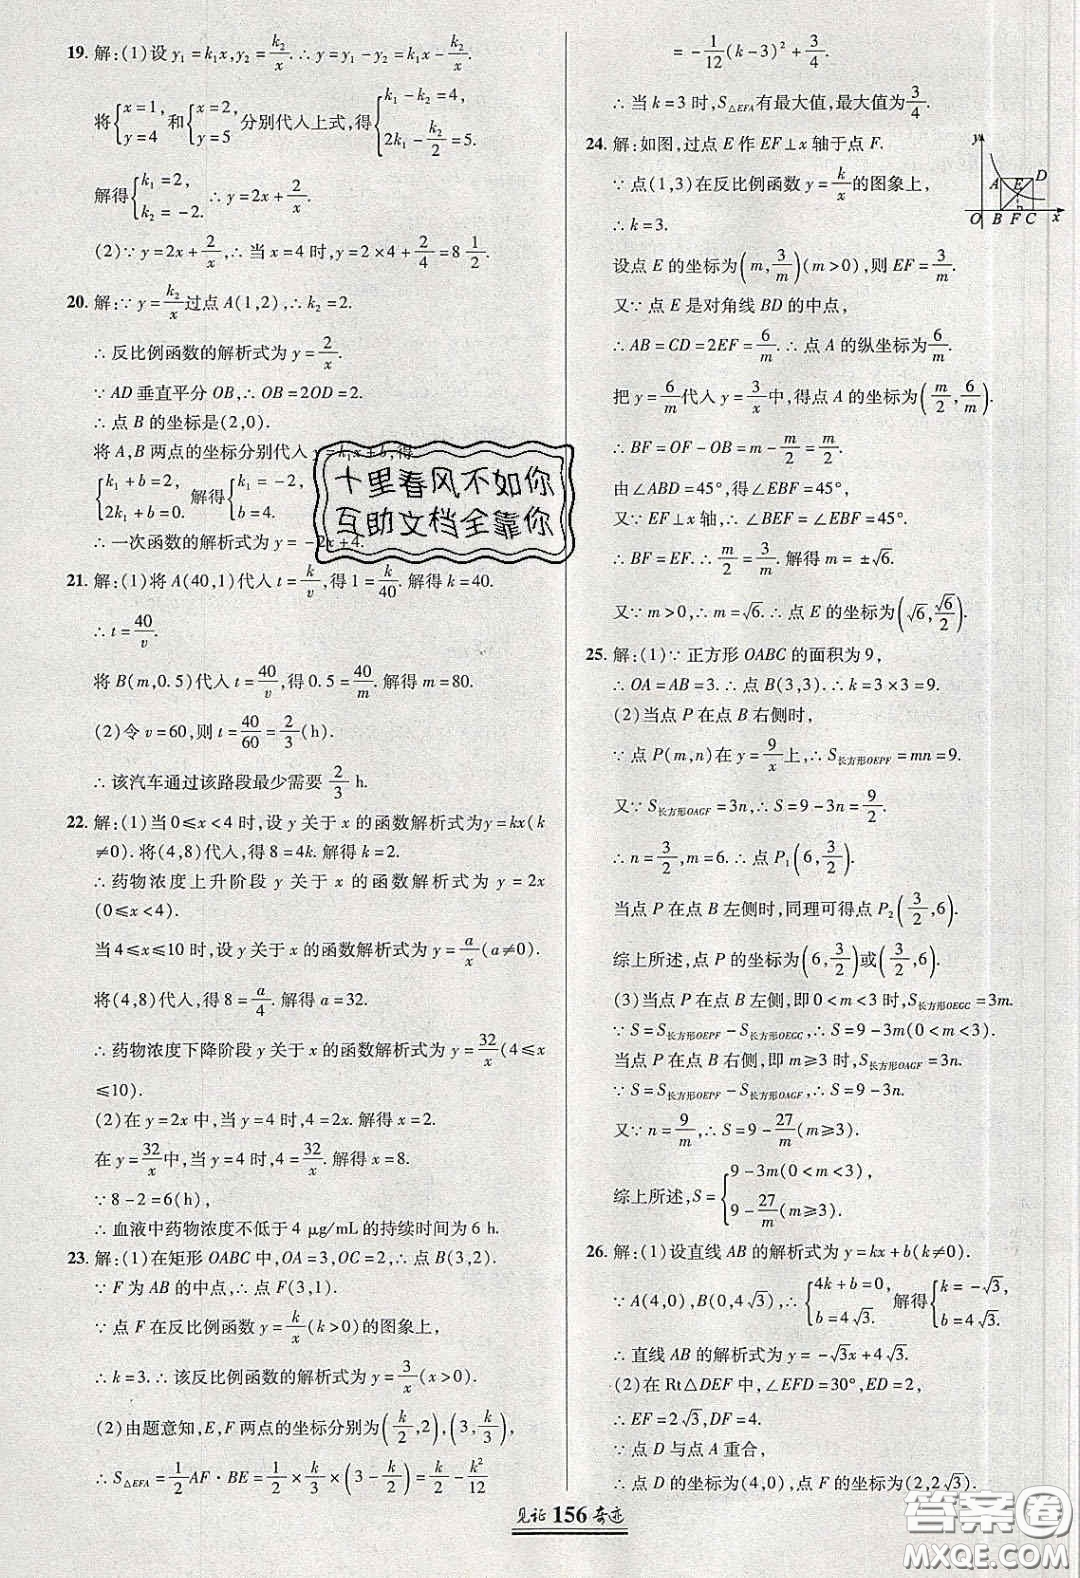 19. 解:(1)设 y₁=k₁x,y₂=k₂/x. ∴ y=y₁-y₂=k₁x-k₂/x.
将{x=1, y=4 和{x=2, y=5 分别代人上式,得{k₁-k₂=4, 2k₁-k₂/2=5.
解得{k₁=2, k₂=-2. ∴ y=2x+2/x.
(2)∵ y=2x+2/x,∴ 当 x=4 时,y=2×4+2/4=8 1/2.
20. 解:∵ y=k₂/x过点 A(1,2),∴ k₂=2.
∴ 反比例函数的解析式为 y=2/x.
∵ AD 垂直平分 OB,∴ OB=2OD=2.
∴ 点 B 的坐标是(2,0).
将 A,B 两点的坐标分别代人 y=k₁x+b,得
{k₁+b=2, 2k₁+b=0. 解得{k₁=-2, b=4.
∴ 一次函数的解析式为 y=-2x+4.
十里春风不如你
互助文档全靠你
21. 解:(1)将 A(40,1)代人 t=k/v,得 1=k/40. 解得 k=40.
∴ t=40/v.
将 B(m,0.5)代人 t=40/v,得 0.5=40/m. 解得 m=80.
(2)令 v=60,则 t=40/60=2/3(h).
∴ 该汽车通过该路段最少需要 2/3 h.
22. 解:(1)当 0≤x<4 时,设 y 关于 x 的函数解析式为y=kx(k
≠0). 将(4,8)代人,得 8=4k. 解得 k=2.
∴药物浓度上升阶段 y 关于 x 的函数解析式为 y=2x
(0≤x<4).
当 4≤x≤10 时,设 y 关于 x 的函数解析式为 y=a/x(a≠0).
将(4,8)代人,得 8=a/4. 解得 a=32.
∴ 药物浓度下降阶段 y 关于 x 的函数解析式为 y=32/x(4≤x
≤10).
(2)在 y=2x 中,当 y=4 时,4=2x. 解得 x=2.
在 y=32/x中,当 y=4 时,4=32/x. 解得 x=8.
∵ 8-2=6(h),
∴ 血液中药物浓度不低于 4 μg/mL 的持续时间为 6 h.
23. 解:(1)在矩形 OABC 中,OA=3,OC=2,∴ 点 B(3,2).
∵ F 为 AB 的中点,∴ 点 F(3,1).
∵ 点 F 在反比例函数 y=k/x(k>0)的图象上,
∴ k=3. ∴ 该反比例函数的解析式为 y=3/x(x>0).
(2)由题意知,E,F 两点的坐标分别为(k/2,2),(3,k/3),
∴ S△EFA=1/2AF·BE=1/2×k/3×(3-k/2)=k/2-k²/12
=-1/12(k-3)²+3/4.
∴ 当 k=3 时,S△EFA有最大值,最大值为3/4.
24. 解:如图,过点 E 作 EF⊥x 轴于点 F.
∵ 点(1,3)在反比例函数 y=k/x的图象上,
∴ k=3.
y A D E O B F C x
设点 E 的坐标为(m,3/m)(m>0),则 EF=3/m.
又∵ 点 E 是对角线 BD 的中点,
∴ AB=CD=2EF=6/m. ∴ 点 A 的纵坐标为6/m.
把 y=6/m代人 y=3/x中,得点 A 的坐标为(m/2,6/m).
∴ BF=OF-OB=m-m/2=m/2.
由∠ABD=45°,得∠EBF=45°.
又∵ EF⊥x 轴,∴ ∠BEF=∠EBF=45°.
∴ BF=EF. ∴ m/2=3/m. 解得 m=±√6.
又∵ m>0,∴ m=√6. ∴ 点 E 的坐标为(√6,√6/2).
25. 解:(1)∵ 正方形 OABC 的面积为 9,
∴ OA=AB=3. ∴ 点 B(3,3). ∴ k=3×3=9.
(2)当点 P 在点 B 右侧时,
∵ 点 P(m,n)在 y=9/x上,∴ S长方形OEPF=mn=9.
又∵ S长方形OAGF=3n,∴ S=9-3n=9/2.
∴ n=3/2,m=6. ∴ 点 P₁(6,3/2).
当点 P 在点 B 左侧时,同理可得点 P₂(3/2,6).
综上所述,点 P 的坐标为(6,3/2)或(3/2,6).
(3)当点 P 在点 B 左侧,即 0<m<3 时,S长方形OEGC=3m.
∵ S=S长方形OEPF-S长方形OEGC,∴ S=9-3m(0<m<3).
当点 P 在点 B 右侧,即 m≥3 时,S长方形OAGF=3n.
∵ S=S长方形OEPF-S长方形OAGF,∴ S=9-3n.
又∵ n=9/m,∴ S=9-27/m(m≥3).
综上所述,S={9-3m(0<m<3), 9-27/m(m≥3).
26. 解:(1)设直线 AB 的解析式为 y=kx+b(k≠0).
∵ A(4,0),B(0,4√3),∴{4k+b=0, b=4√3. 解得{k=-√3, b=4√3.
∴ 直线 AB 的解析式为 y=-√3x+4√3.
(2)在 Rt△DEF 中,∠EFD=30°,ED=2,
∴ EF=2√3,DF=4.
∵ 点 D 与点 A 重合,
∴ 点 D 的坐标为(4,0),点 F 的坐标为(2,2√3).
见证 156 奇迹
答案圈
MXQE.COM